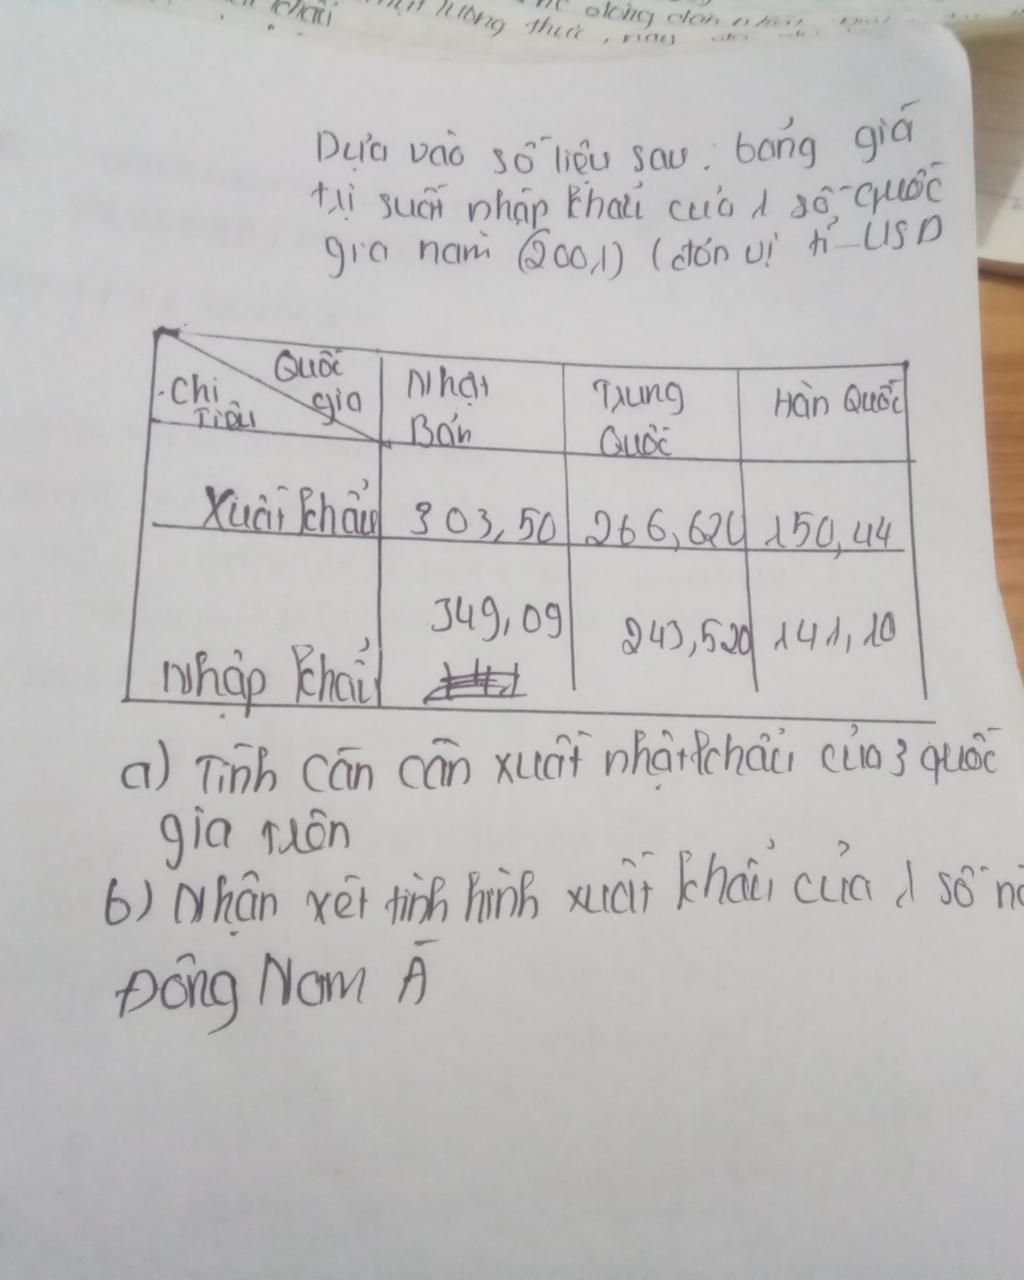 lương thực, nay
Dựa vào số liệu sau. bảng giá
trị suất nhập khẩu của 1 số quốc
gia năm (2001) (đơn vị tỉ USD
Quốc gia
Chi Tiêu
Nhật Bản
Trung Quốc
Hàn Quốc
Xuất khẩu 303,50 266,620 150,44
Nhập khẩu 349,09 243,520 141,10
a) Tính cán cân xuất nhật khẩu của 3 quốc
gia trên
b) Nhận xét tình hình xuất khẩu của 1 số
Đông Nam Á